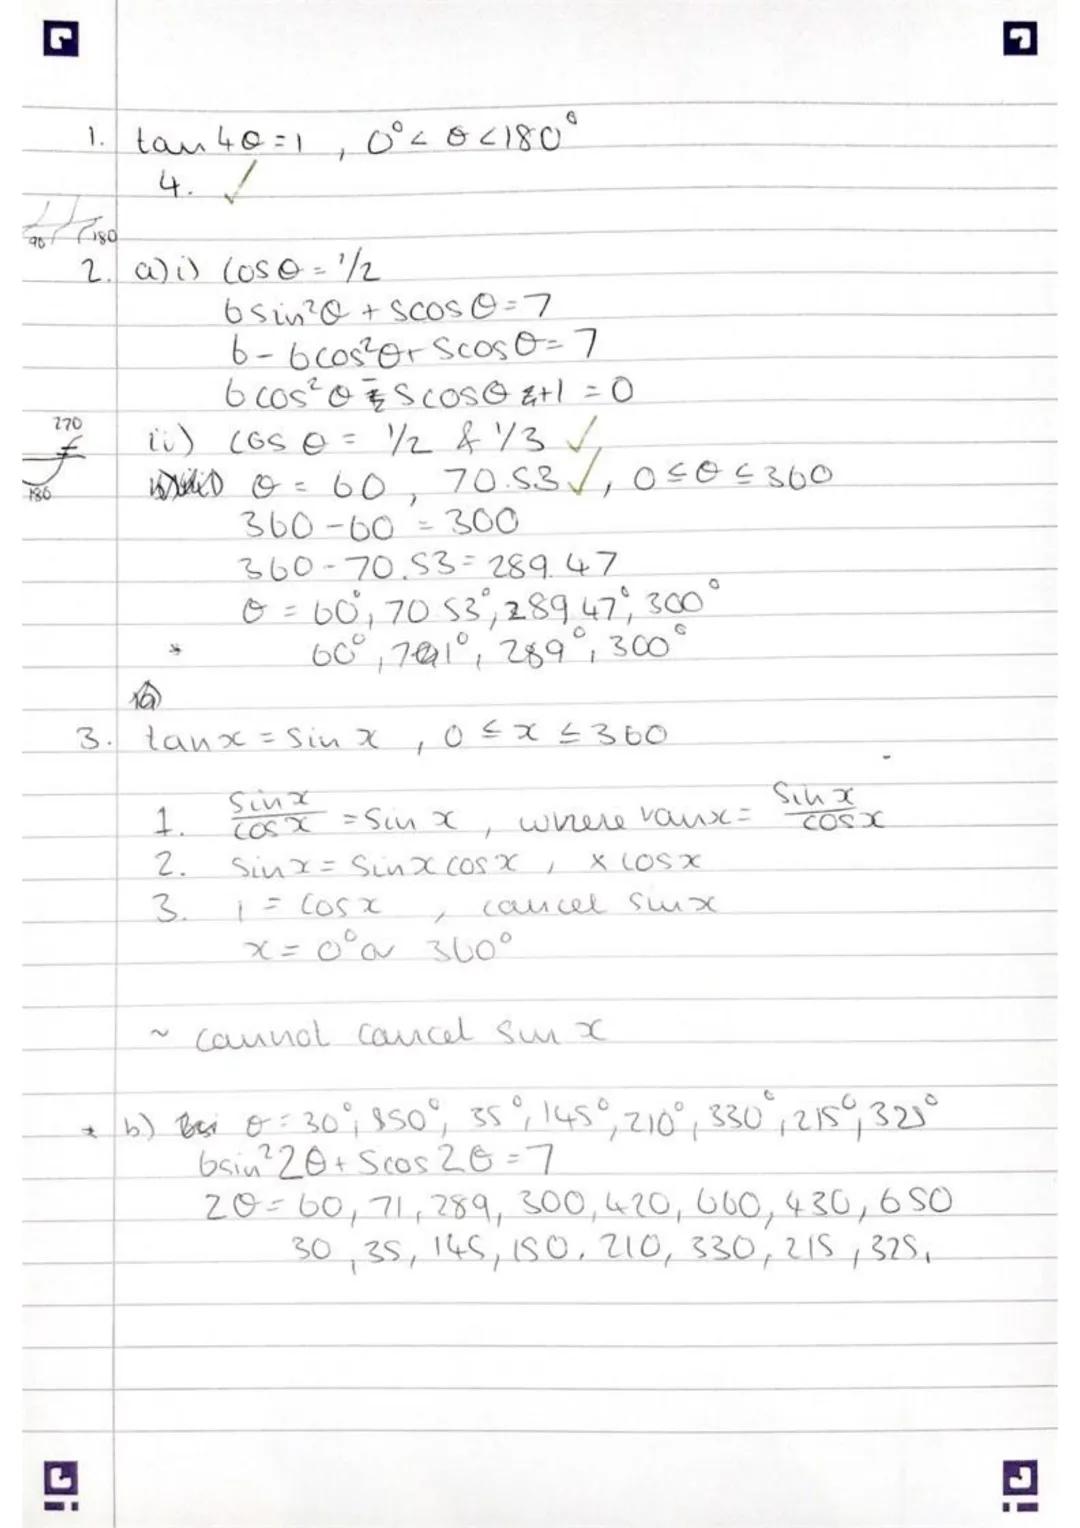 1. tan 4θ = 1 , 0° < θ < 180°
4. ✓
90 180
2. a) i) cos θ = 1/2
6 sin²θ + 5cos θ = 7
6 - 6cos²θ + 5cos θ = 7
6 cos²θ - 5cos θ +1 = 0
270
180
ii) cos θ = 1/2 & 1/3 ✓
θ = 60 , 70.53 ✓ , 0 ≤ θ ≤ 360
360 - 60 = 300
360 - 70.53 = 289.47
θ = 60°, 70.53°, 289.47°, 300°
* 60°, 71°, 289°, 300°
3. tan x = sin x , 0 ≤ x ≤ 360
1. sin x / cos x = sin x , where tan x = sin x / cos x
2. sin x = sin x cos x , × cos x
3. 1 = cos x , cancel sin x
x = 0° or 360°
~ cannot cancel sin x
* b) θ = 30°, 150°, 35°, 145°, 210°, 330°, 215°, 325°
6sin²2θ + 5cos 2θ = 7
2θ = 60, 71, 289, 300, 420, 660, 430, 650
30, 35, 145, 150, 210, 330, 215, 325,